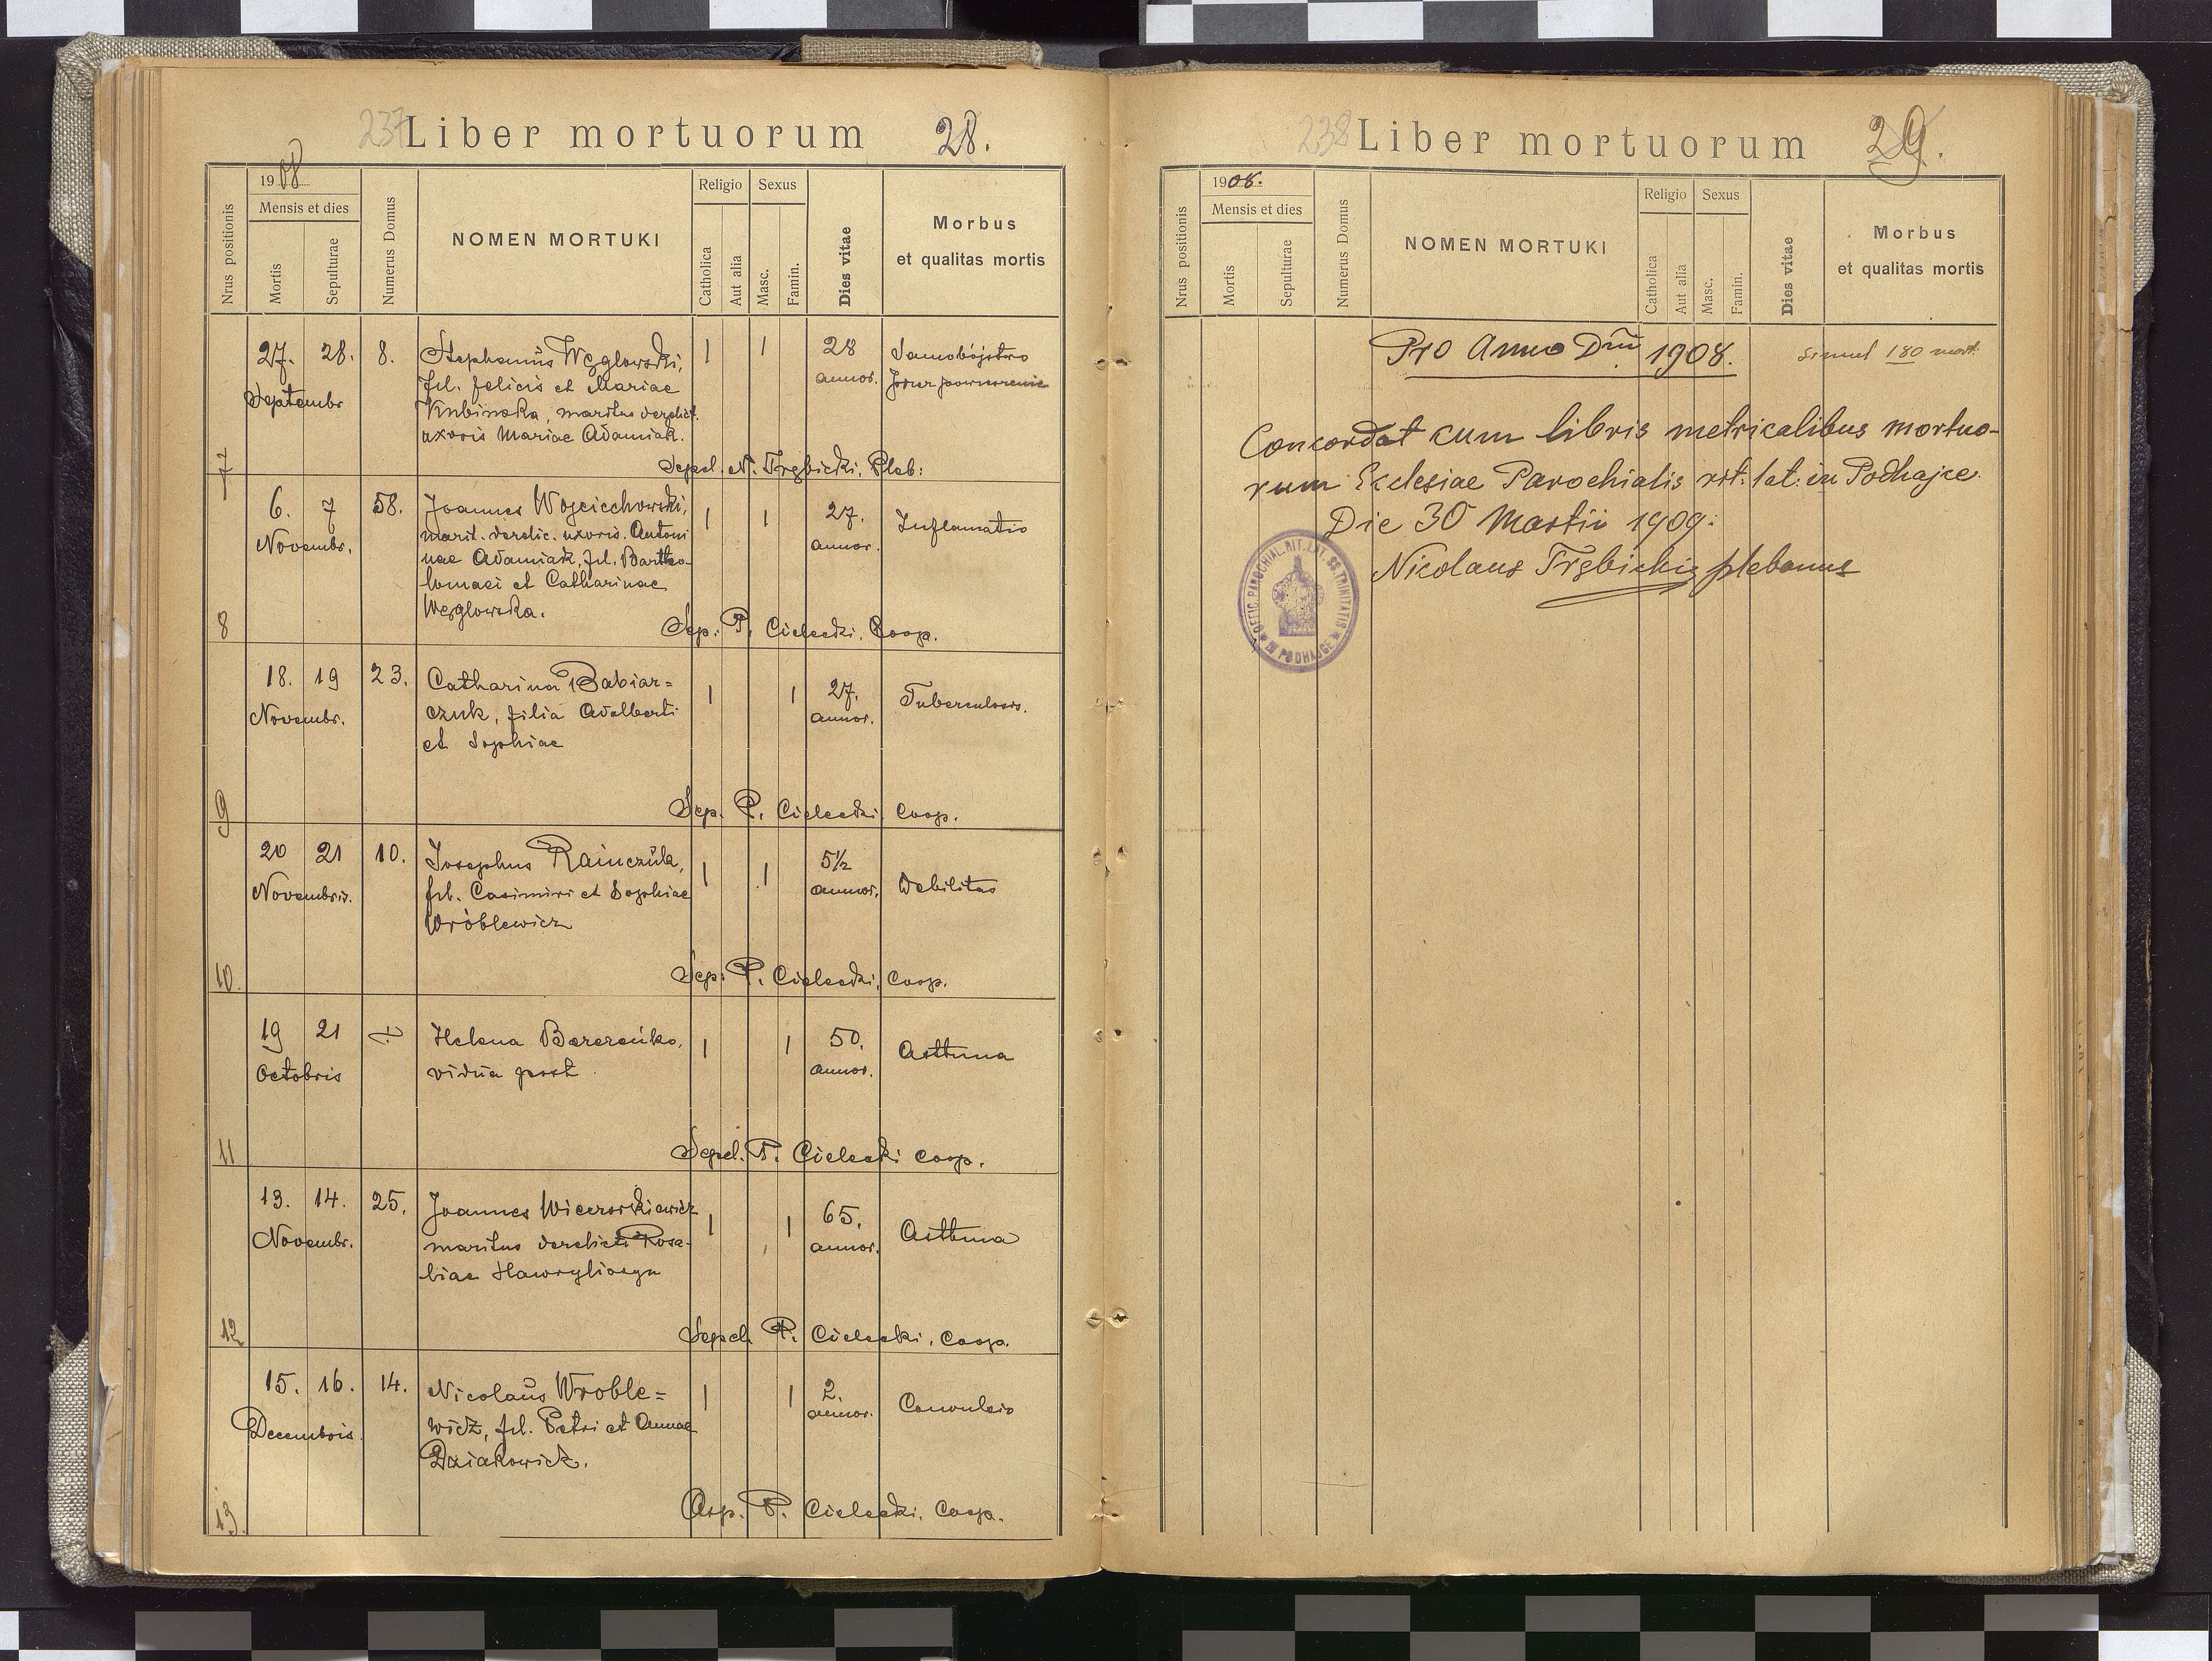 237 Liber mortuorum 28.
Nrus positionis
1908
Mensis et dies
Mortis
Sepulturae
Numerus Domus
NOMEN MORTUKI
Religio
Catholica
Aut alia
Sexus
Masc.
Famin.
Dies vitae
Morbus
et qualitas mortis
7
27. 28. 8.
Septembr
Stephanus Węglowski,
fil. Felicis et Mariae
Kubinska, maritus derelict.
uxoris Mariae Adamiak.
1 1
28
annor.
Samobójstwo
przez powieszenie
Sepel. N. Trębicki, Pleb:
8
6. 7 58.
Novembr.
Joannes Wojciechowski,
marit. derelic. uxoris. Antoni
nae Adamiak, fil. Bartho-
lomaei et Catharinae
Węglowska.
1 1
27.
annor.
Inflamatio
Sep. P. Cielecki, Coop.
9
18. 19 23.
Novembr.
Catharina Babiar=
czuk, filia Adalberti
et Sophiae
1 1
27.
annor.
Tuberculosis.
Sep. P. Cielecki, Coop.
10.
20 21 10.
Novembris.
Josephus Rainczuk,
fil. Casimiri et Sophiae
Wróblewicz
1 1
5½
annor.
Debilitas
Sep. P. Cielecki, Coop.
11
19 21
Octobris
Helena
vidua post
1 1
50.
annor.
Asthma
Sepel. P. Cielecki coop.
12
13. 14. 25.
Novembr.
Joannes
maritus derelicti Rosa-
liae
1 1
65.
annor.
Asthma
Sepel. P. Cielecki, Coop.
13.
15. 16. 14.
Decembris.
Nicolaus Wroble=
wicz, fil. Petri et Annae
Dziakowicz.
1 1
2.
annor.
Convulsio
P. Cielecki, Coop.
238 Liber mortuorum 29.
Nrus positionis
1908.
Mensis et dies
Mortis
Sepulturae
Numerus Domus
NOMEN MORTUKI
Religio
Catholica
Aut alia
Sexus
Masc.
Famin.
Dies vitae
Morbus
et qualitas mortis
Pro Anno Dni 1908. Simul 180 mort.
Concordat cum libris metricalibus mortuo-
rum Ecclesiae Parochialis rit. lat. in Podhajce.
Die 30 Martii 1909.
Nicolaus Trębicki plebanus
OFFIC. PAROCHIAL. RIT. LAT. SS. TRINITATIS
IN PODHAJCE